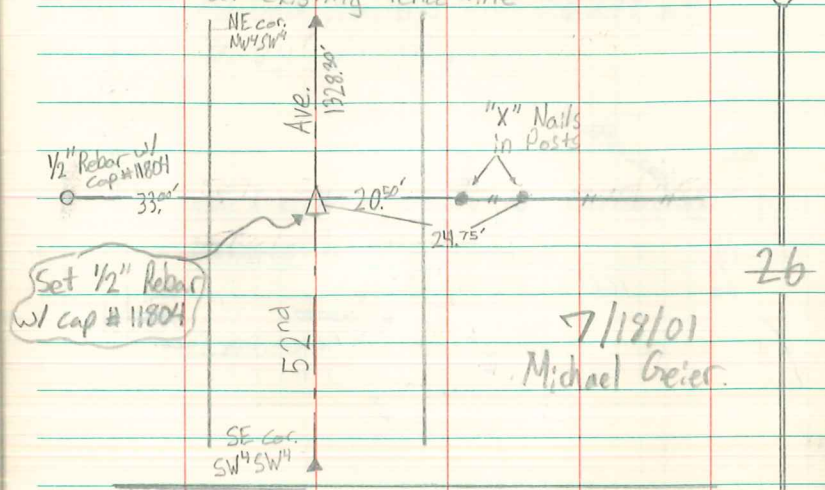 on existing fence line
NE cor.
NW⁴SW⁴
Ave.
1328.30'
"X" Nails
in Posts
1/2" Rebar w/
cap #11804
33.00'
20.50'
24.75'
Set 1/2" Rebar
w/ cap # 11804
52nd
26
7/18/01
Michael Geier.
SE cor.
SW⁴SW⁴